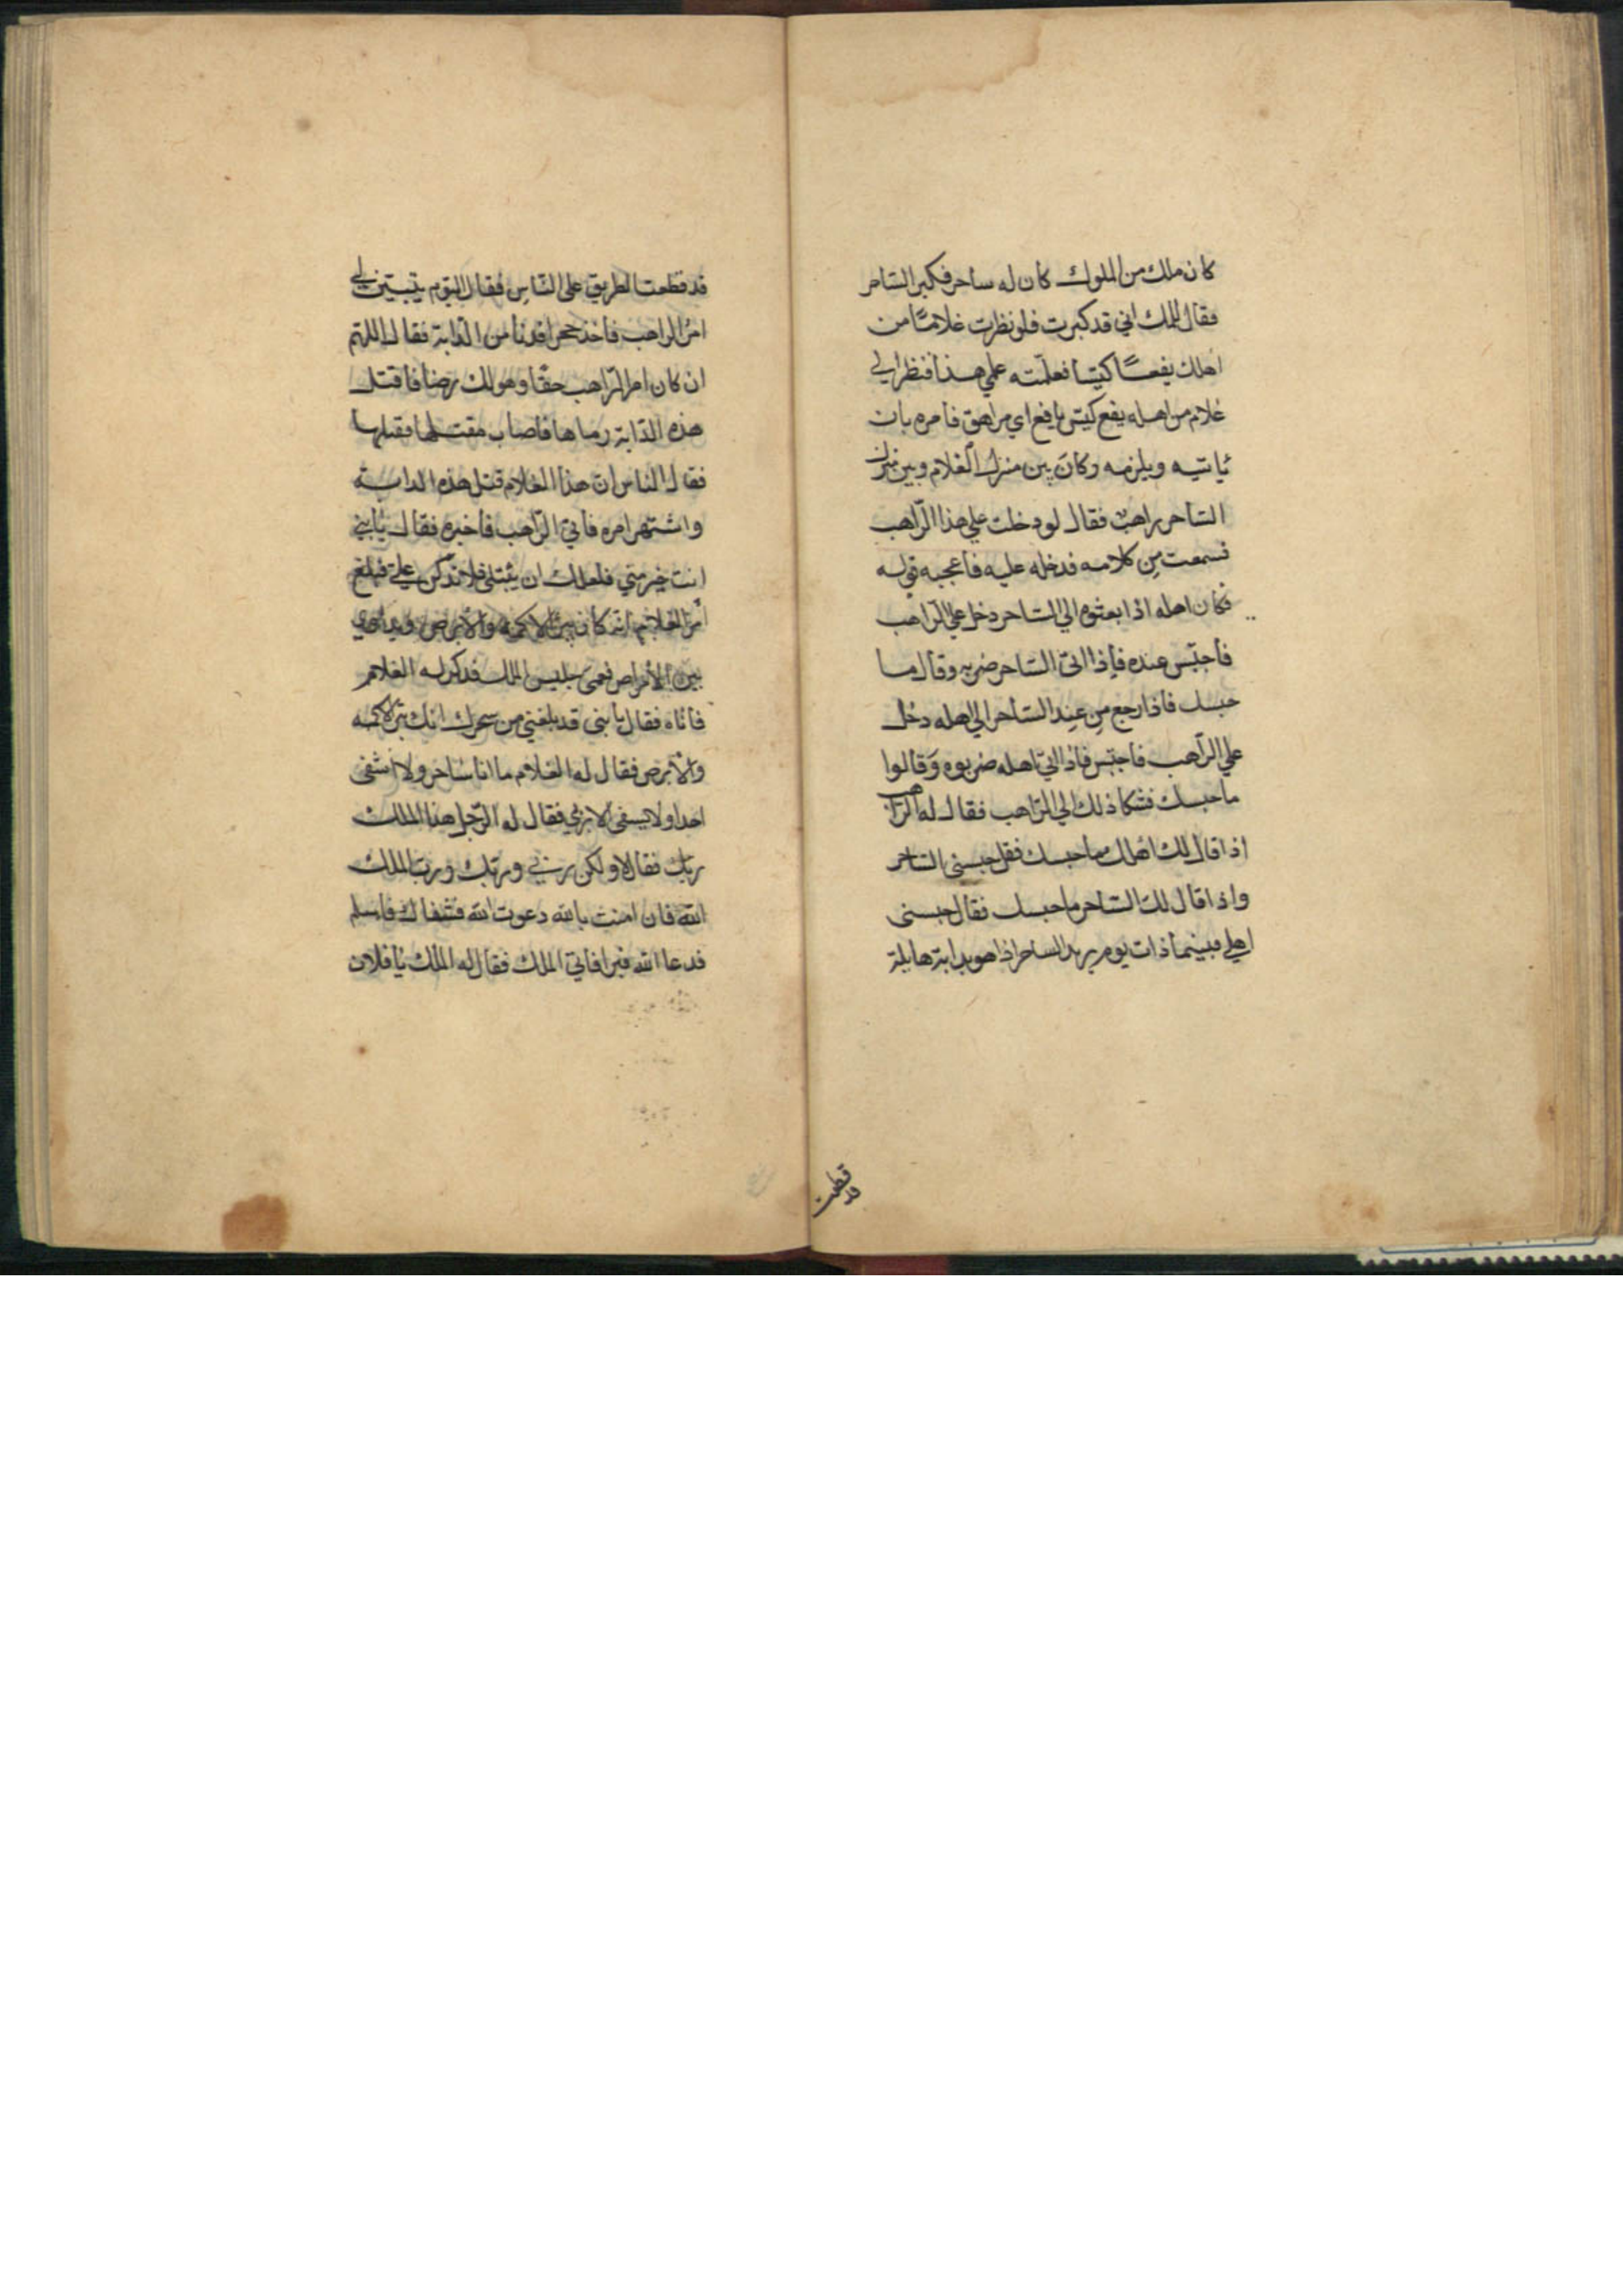 كان ملك من الملوك كان له ساحر فكبر الساحر
فقال للملك اني قد كبرت فلو نظرت غلامًا من
اهلك يفعًا كيّسا فعلّمته علمي هذا فنظر الي
غلام من اهله يفع كيّس يافع اي مراهق فامره بان
ياتيه ويلزمه وكان بين منزل الغلام وبين منزل
الساحر راهب فقال لو دخلت علي هذا الرّاهب
فسمعت من كلامه فدخله عليه فاعجبه قوله
فكان اهله اذا بعثوه الي الساحر دخل علي الرّاهب
فاحبّس عنده فاذا اتى الساحر ضربه وقال ما
حبسك فاذا رجع من عند الساحر الي اهله دخل
علي الرّاهب فاحبّس فاذا اتي اهله ضربوه وقالوا
ما حبسك فشكا ذلك الي الرّاهب فقال له الراهب
اذا قال لك اهلك ما حبسك فقل حبسنى الساحر
واذا قال لك الساحر ما حبسك فقال حبسنى
اهلي فبينما ذات يوم يريد الساحر اذا هو بدابة هايلة
قد قطعت
قد قطعت الطريق على الناس فقال اليوم يتبيّن لي
امر الراهب فاخذ حجرا فدنا من الدّابة فقال اللهمّ
ان كان امر الرّاهب حقّا وهو لك رضا فاقتل
هذه الدّابة رماها فاصاب مقتلها فقتلها
فقال الناس ان هذا الغلام قتل هذه الدابة
واشتهر امره فاتي الرّاهب فاخبره فقال يا بني
انت خير منّي فلعلك ان يبتلى فلا تذكرن علىّ فبلغ
امر الغلام انه كان يبرئ الاكمه والابرص ويداوي
بين الامراض فعمى جليس الملك فذكر له الغلام
فاتاه فقال يا بنى قد بلغني من سحرك انك تبرئ الاكمه
والابرص فقال له الغلام ما انا ساحر ولا اشفى
احدا ولا يشفى الا ربي فقال له الرّجل هذا الملك
ربّك فقال لا ولكن ربّي وربّك وربّ الملك
الله فان امنت بالله دعوت الله فشفاك فاسلم
فدعا الله فبرا فاتي الملك فقال له الملك يا فلان